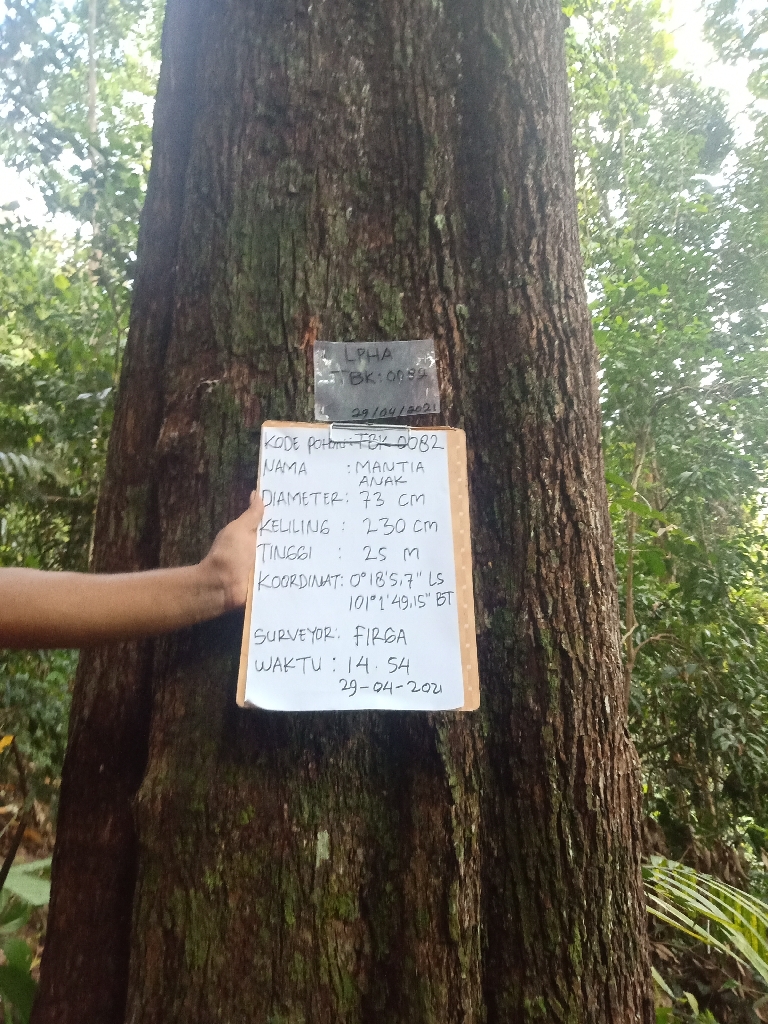 LPHA
TBK:0082
29/04/2021
KODE POHON: TBK 0082
NAMA : MANTIA
ANAK
DIAMETER: 73 CM
KELILING : 230 CM
TINGGI : 25 M
KOORDINAT: 0°18'5,7" LS
101°1'49,15" BT
SURVEYOR: FIRGA
WAKTU : 14.54
29-04-2021